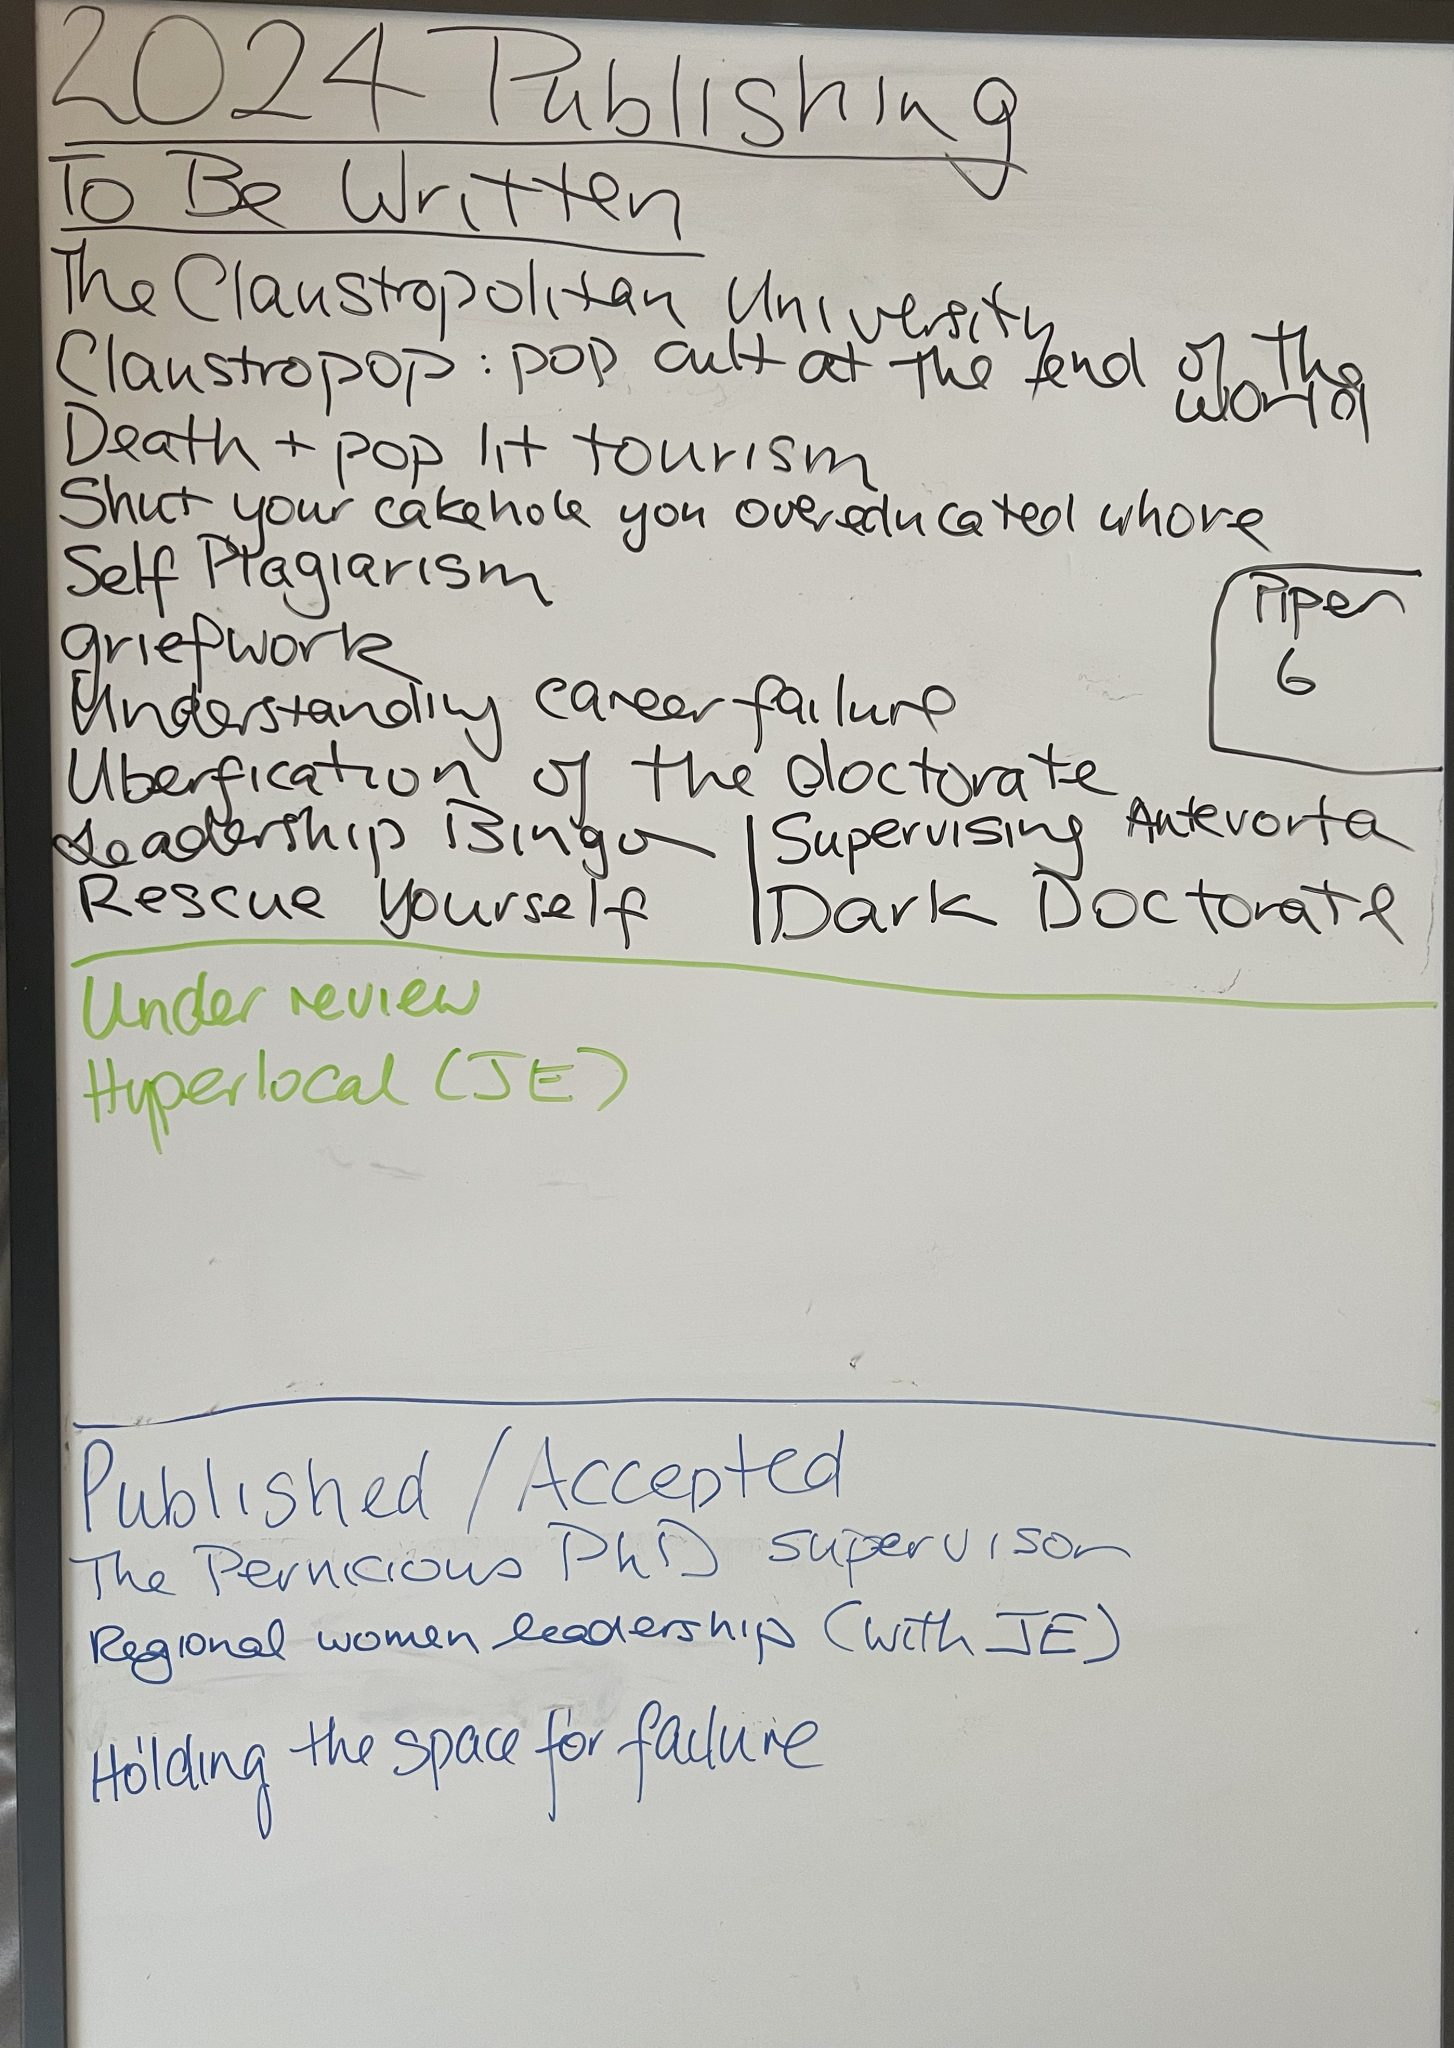 2024 Publishing
To Be Written
The Claustropolitan University
Claustropop: pop cult at the end of the world
Death + pop lit tourism
Shut your cakehole you overeducated whore
Self Plagiarism
griefwork
Understanding career failure
Piper
6
Uberfication of the doctorate
Leadership Bingo | Supervising Antevorta
Rescue Yourself | Dark Doctorate
Under review
Hyperlocal (JE)
Published / Accepted
The Pernicious PhD supervisor
Regional women leadership (with JE)
Holding the space for failure